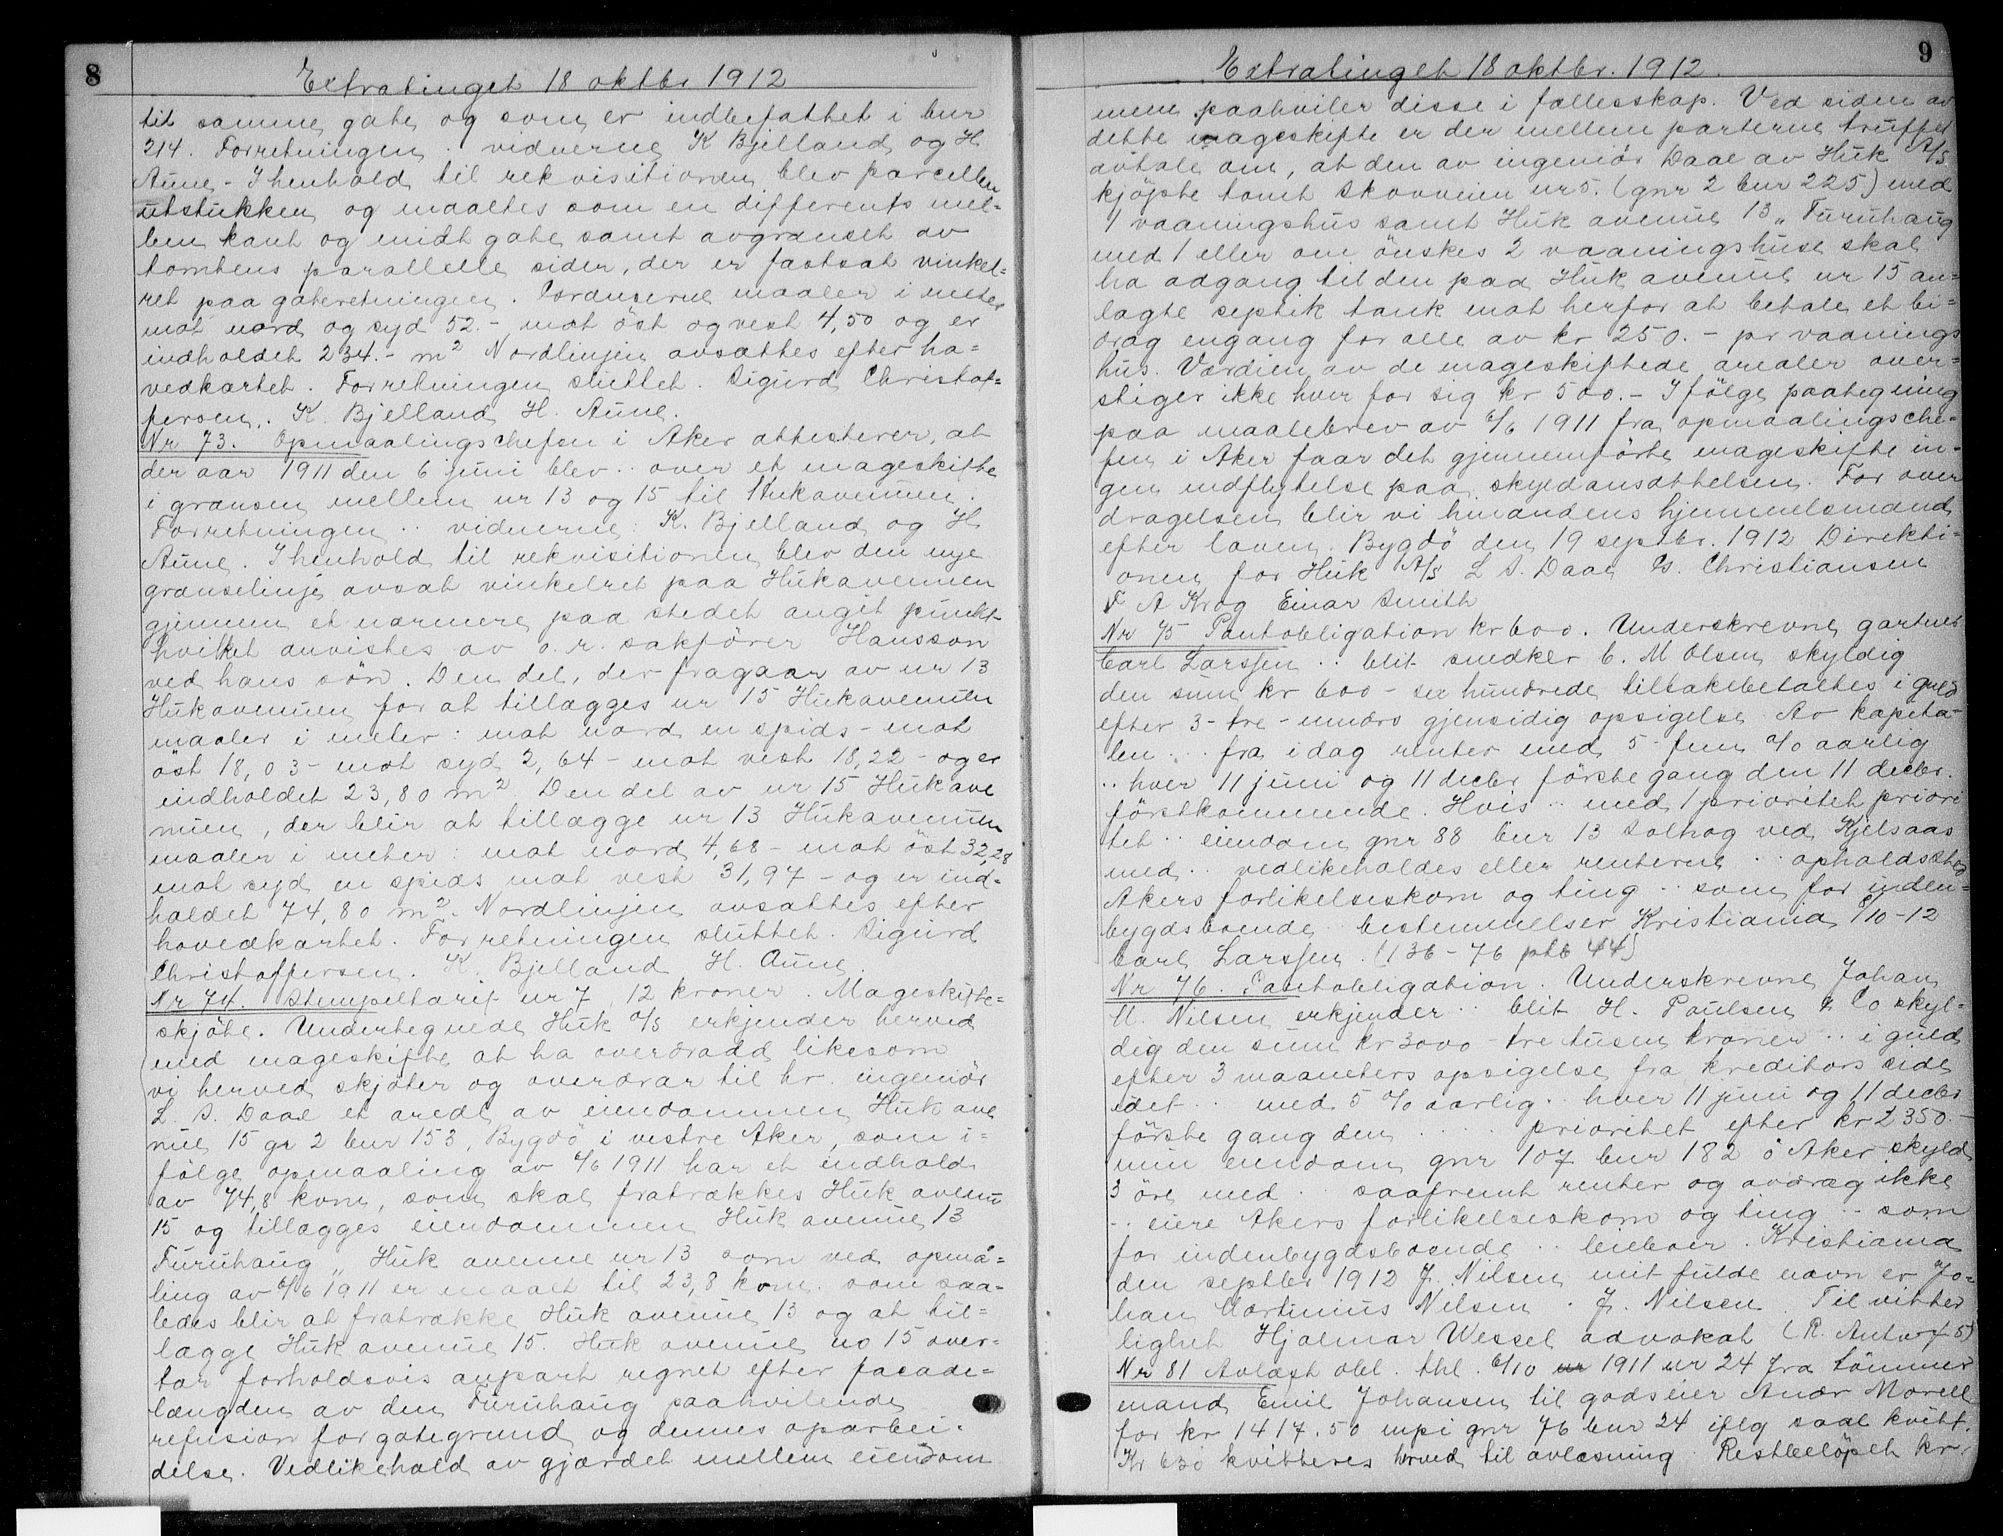 8
Extratinget 18 oktbr 1912
til samme gate og som er indbefattet i bnr
214. Forretningen .. vidnerne K Bjelland og H
Aune - I henhold til rekvisitionen blev parcellen
utstukken og maaltes som en differents mel-
lem kant og midt gate samt avgrænset av
tomtens parallelle sider, der er fastsat vinkel-
ret paa gateretningen. Grænserne maaler i meter
mot nord og syd 52.- mot öst og vest 4,50 og er
indholdet 234.- m² Nordlinjen avsættes efter ho-
vedkartet. Forretningen sluttet. Sigurd Christof-
fersen. K. Bjelland H. Aune.
Nr 73. Opmaalingschefen i Aker attesterer, at
der aar 1911 den 6 juni blev .. over et mageskifte
i grænsen mellem nr 13 og 15 til Hukavenuen.
Forretningen .. vidnerne K. Bjelland og H
Aune. I henhold til rekvisitionen blev den nye
grænselinje avsat vinkelret paa Hukavenuen
gjennem et nærmere paa stedet angit punkt
hvilket anvistes av o. r. sakförer Hansson
ved hans sön. Den del, der fragaar av nr 13
Hukavenuen for at tillægges nr 15 Hukavenuen
maaler i meter: mot nord en spids - mot
öst 18,03 - mot syd 2,64 - mot vest 18,22 - og er
indholdet 23,80 m² Den del av nr 15 Hukave
nuen, der blir at tillægge nr 13 Hukavenuen
maaler i meter: mot nord 4,68 - mot öst 32,28
mot syd en spids mot vest 31,97 - og er ind-
holdet 74,80 m². Nordlinjen avsættes efter
hovedkartet. Forretningen sluttet. Sigurd
Christoffersen. K. Bjelland H. Aune.
Nr 74. Stempeltarif nr 7, 12 kroner. Mageskifte-
skjöte. Undertegnede Huk A/S erkjender herved
med mageskifte at ha overdradd likesom
vi herved skjöter og overdrar til hr. ingeniör
L. S. Daae et areal av eiendommen Huk ave
nue 15 gr 2 bnr 153, Bygdö i vestre Aker, som i-
fölge opmaaling av 6/6 1911 har et indhold
av 74,8 kvm, som skal fratrækkes Huk avenu
15 og tillægges eiendommen Huk avenue 13
Furuhaug „ Huk avenue nr 13 som ved opmå-
ling av 6/6 1911 er maalt til 23,8 kvm. som saa-
ledes blir at fratrække Huk avenue 13 og at til-
lægge Huk avenue 15. Huk avenue no 15 over-
tar forholdsvis anpart regnet efter facade-
længden av den Furuhaug paahvilende
refusion for gategrund og dennes oparbei-
delse. Vedlikehold av gjærdet mellem eiendom
9
Extratinget 18 oktbr. 1912.
mene paahviler disse i fællesskap. Ved siden av
dette mageskifte er der mellem parterne truffet
avtale om, at den av ingeniör Daae av Huk A/S
kjöpte tomt Skovveien nr 5. (gnr 2 bnr 225) med
1 vaaningshus samt Huk avenue 13 „ Furuhaug
med 1 eller om önskes 2 vaaningshuse skal
ha adgang til den paa Huk avenue nr 15 an-
lagte septik tank mot herfor at betale et bi-
drag engang for alle av kr 250.- pr vaanings
hus. Værdien av de mageskiftede arealer over-
stiger ikke hver for sig kr 500.- I fölge paategning
paa maalebrev av 6/6 1911 fra opmaalingsche-
fen i Aker faar det gjennemförte mageskifte in-
gen indflytelse paa skyldansættelsen. For over
dragelsen blir vi hinandens hjemmelsmænd
efter loven. Bygdö den 19 septbr. 1912 Direkti-
onen for Huk A/S L S. Daae Chr. Christiansen
F A Krog Einar Smith
Nr 75 Pantobligation kr 600. Underskrevne gartner
Carl Larssen .. blit snedker C. M Olsen skyldig
den sum kr 600 - sex hundrede tilbakebetaltes i guld
efter 3 - tre - mnders gjensidig opsigelse. Av kapita-
len .. fra idag renter med 5 - fem % aarlig
.. hver 11 juni og 11 decbr förste gang den 11 decbr.
förstkommende. Hvis .. med 1 prioritet priori
tet .. eiendom gnr 88 bnr 13 Solhog ved Kjelsaas
med .. vedlikeholdes eller renterne .. opholdssted
Akers forlikelseskom og ting .. som for inden-
bygdsboende .. bestemmelser Kristiania 8/10-12
Carl Larssen. (136-76 ptb 44)
Nr 76. Pantobligation. Underskrevne Johan
M. Nilsen erkjender .. blit H. Poulsen & Co skyl-
dig den sum kr 3000 - tre tusen kroner .. i guld
efter 3 maaneters opsigelse fra kreditors side
idet .. med 5 % aarlig .. hver 11 juni og 11 decbr
förste gang den .... prioritet efter kr 2350.-
min eiendom gnr 107 bnr 182 ö Aker skyld
3 öre med .. saafremt renter og avdrag ikke
.. eiere Akers forlikelseskom og ting .. som
for indenbygdsboende .. leieboer. Kristiania
den septbr 1912 J. Nilsen mit fulde navn er Jo-
han Martinius Nilsen . J. Nilsen Til vitter
lighet Hjalmar Wessel advokat (R. Antv f 5)
Nr 81 Avlæst obl. thl. 6/10 1911 nr 24 fra tömmer
mand Emil Johansen til godseier Andr Morell
for kr 1417.50 mpi gnr 76 bnr 24 iflg saal kvitt.
Kr 630 kvitteres herved til avlæsning. Restbelöpet kr.